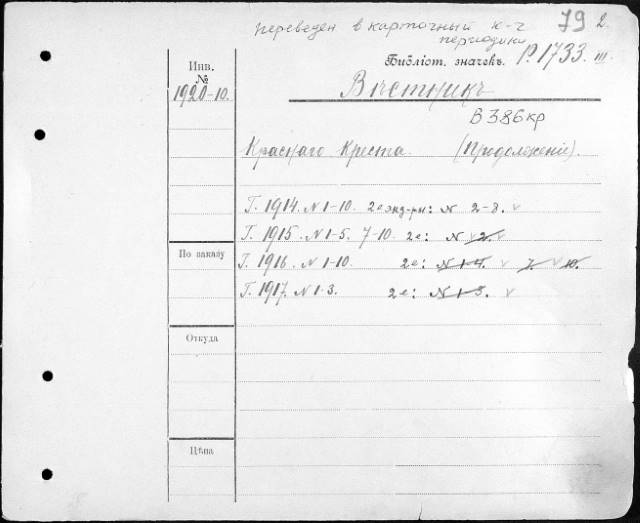 Переведен в карточный к-г 79 2.
периодики
Инв. Библіот. значекъ. Р. 1733. III.
№
1920-10. Вѣстникъ
В386кр
Краснаго Креста. (Продолженіе).
Г. 1914. N 1-10. 2е экз-ры: N 2-8. v
Г. 1915. N 1-5. 7-10. 2е: N v 2. v
По заказу
Г. 1916. N 1-10. 2е: N 1-4. v 7. v 10.
Г. 1917. N 1-3. 2е: N 1-3. v
Откуда
Цѣна